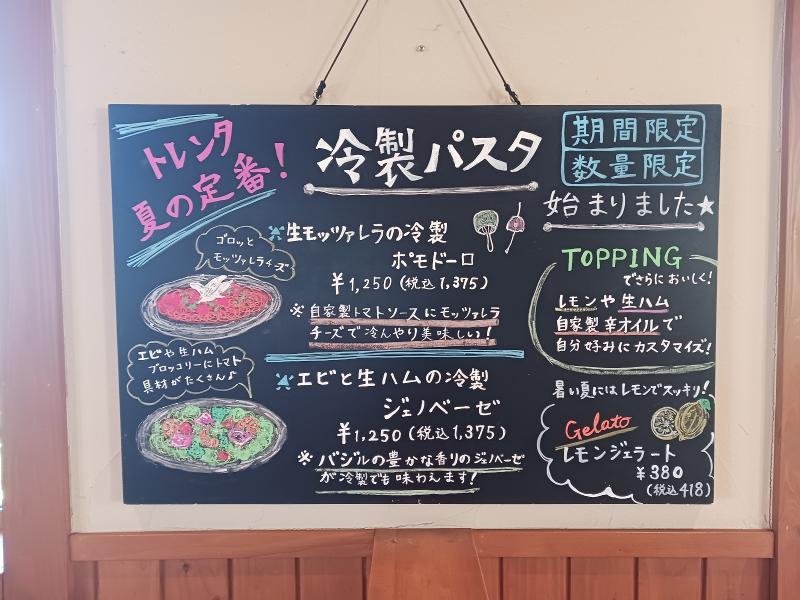 トレンタ
夏の定番!
冷製パスタ
期間限定
数量限定
始まりました★
ゴロッと
モッツァレラチーズ
生モッツァレラの冷製
ポモドーロ
¥1,250(税込1,375)
※自家製トマトソースにモッツァレラ
チーズで冷んやり美味しい!
エビや生ハム
ブロッコリーにトマト
具材がたくさん♪
エビと生ハムの冷製
ジェノベーゼ
¥1,250(税込1,375)
※バジルの豊かな香りのジェノベーゼ
が冷製でも味わえます!
TOPPING
でさらにおいしく!
レモンや生ハム
自家製辛オイルで
自分好みにカスタマイズ!
暑い夏にはレモンでスッキリ!
Gelato
レモンジェラート
¥380
(税込418)